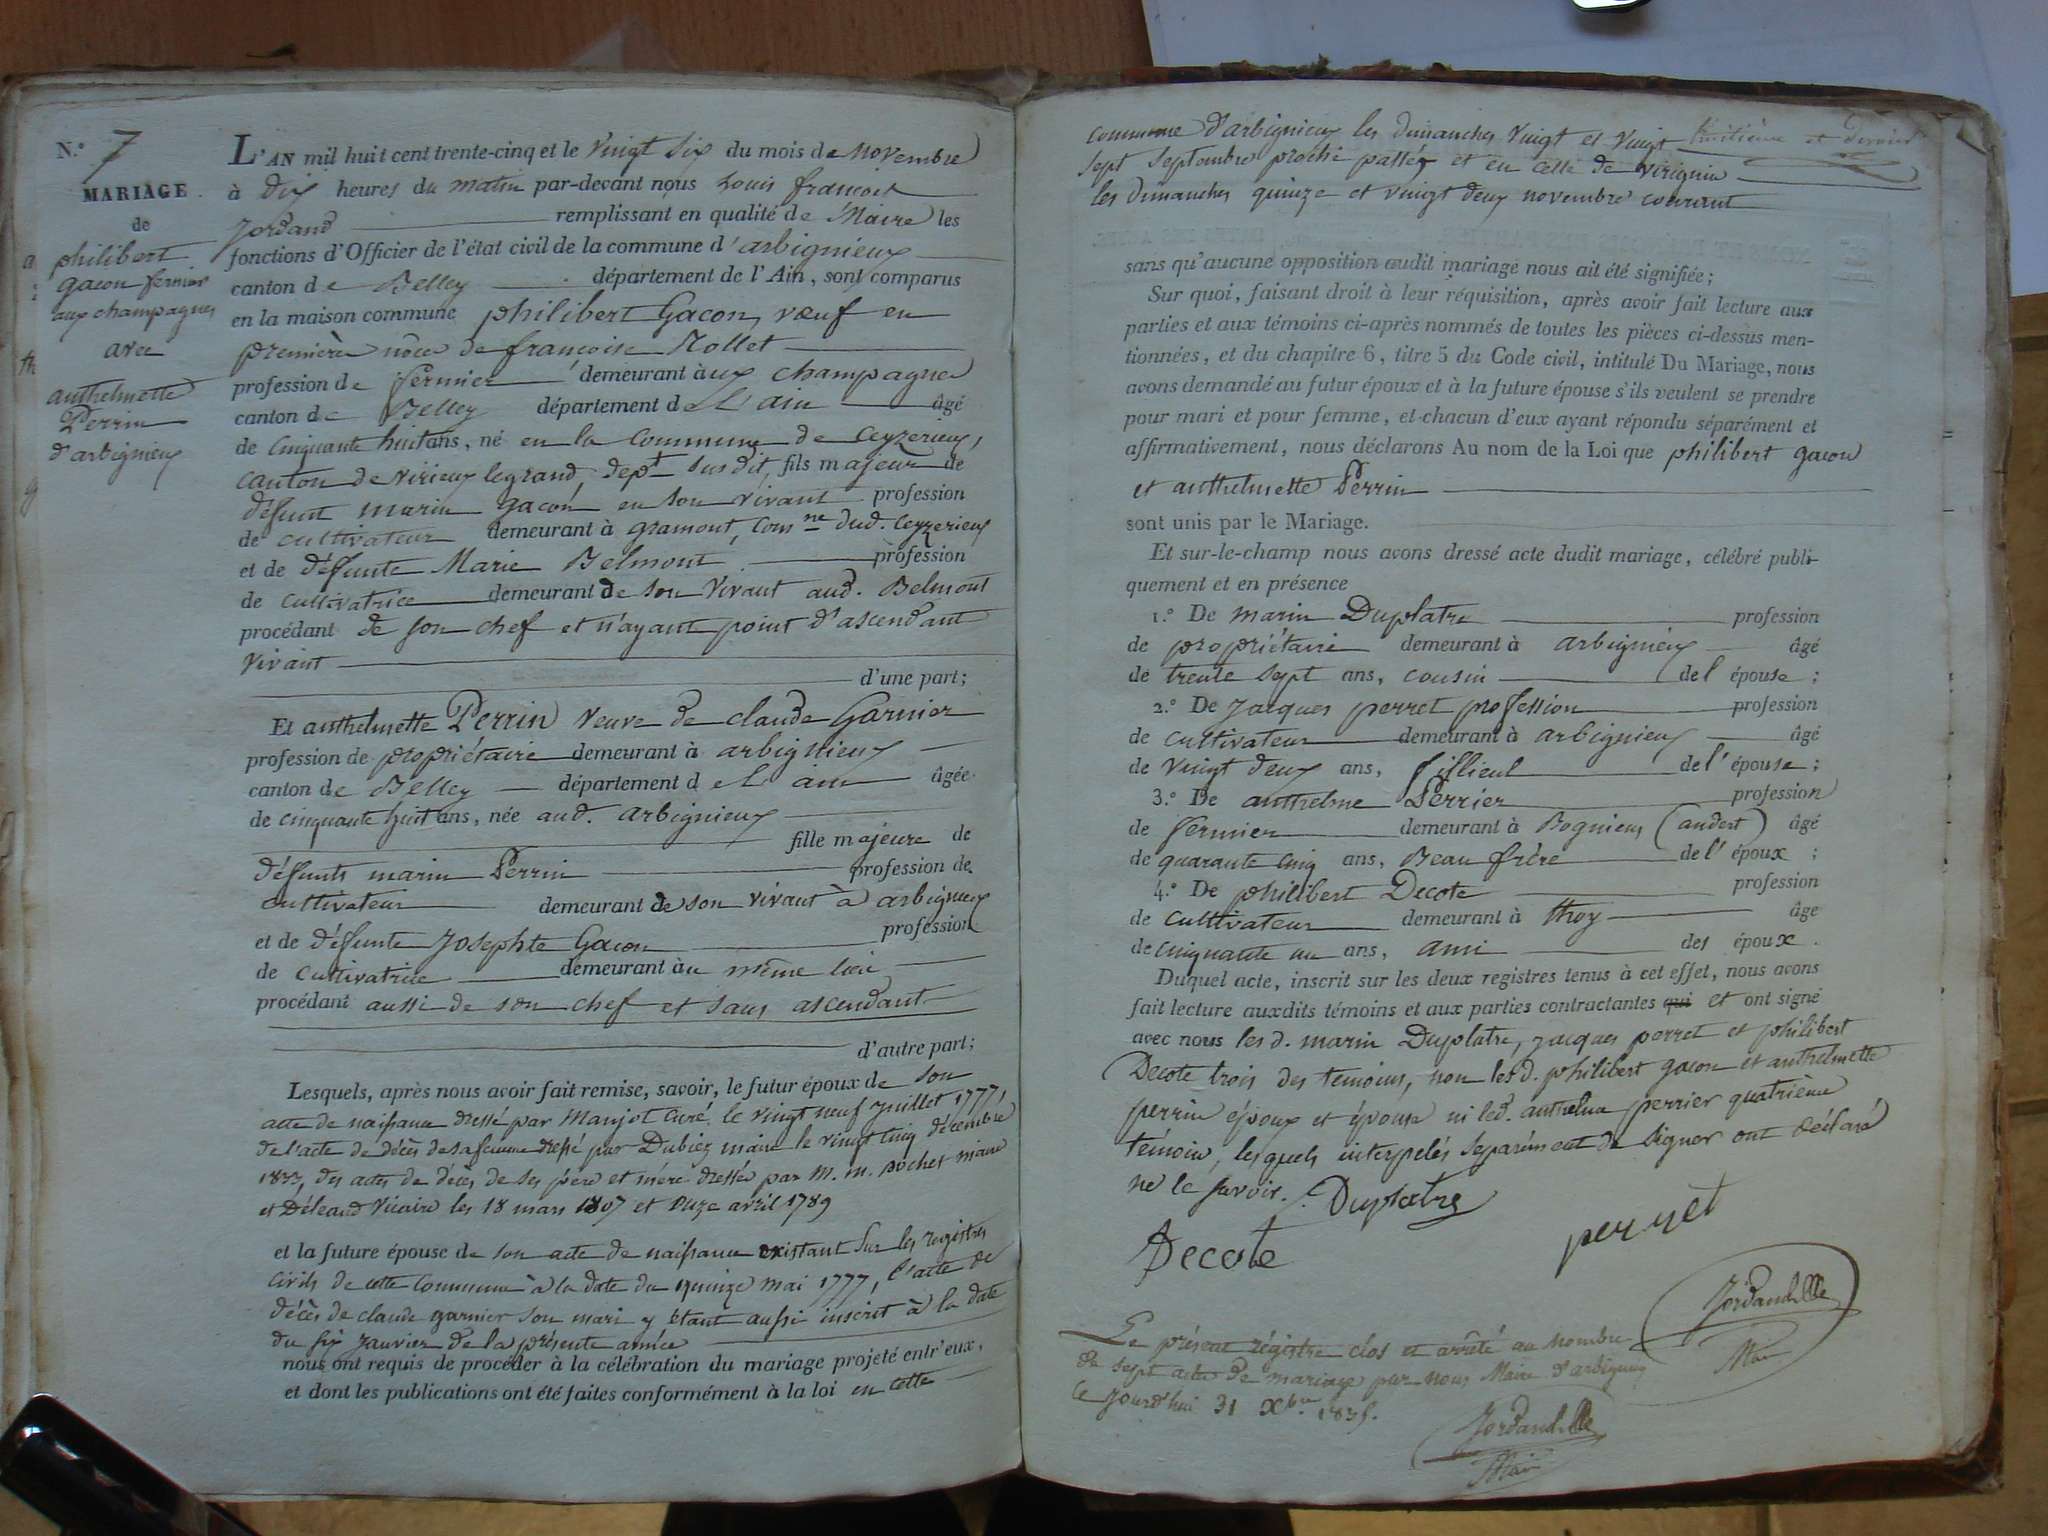 N.° 7
MARIAGE
de
philibert
gacon fermier
aux champagnes
avec
anthelmette
Perrin
d'arbignieux
L'AN mil huit cent trente-cinq et le vingt six du mois de novembre
à dix heures du matin par-devant nous Louis françois
Jordand remplissant en qualité de Maire les
fonctions d'Officier de l'état civil de la commune d'arbignieux
canton de Belley département de l'Ain, sont comparus
en la maison commune philibert Gacon, vœuf en
première nôce de françoise Mollet
profession de fermier demeurant àux champagnes
canton de Belley département de L'ain âgé
de cinquante huit ans, né en la commune de Ceyzerieux,
canton de virieux legrand, dept susdit, fils majeur de
défunt marin gacon en son vivant profession
de cultivateur demeurant à gramont, comne dud. Ceyzerieux
et de défunte Marie Belmont profession
de cultivatrice demeurant de son vivant aud. Belmont
procédant de son chef et n'ayant point d'ascendant
vivant
d'une part;
Et anthelmette Perrin veuve de claude Garnier
profession de propriétaire demeurant à arbignieux
canton de Belley département de L'ain âgée
de cinquante huit ans, née aud. arbignieux
fille majeure de
défunts marin Perrin profession de
cultivateur demeurant de son vivant à arbignieux
et de défunte Josephte Gacon profession
de cultivatrice demeurant àu même lieu
procédant aussi de son chef et sans ascendant
d'autre part;
Lesquels, après nous avoir fait remise, savoir, le futur époux de son
acte de naissance dressé par Manjot curé, le vingt neuf Juillet 1777,
de l'acte de décès de sa femme dressé par Dubiez maire le vingt cinq décembre
1833, des actes de décès de ses père et mère dressés par M. M. Rochet maire
et Déléaud Vicaire les 18 mars 1807 et onze avril 1789
et la future épouse de son acte de naissance existant sur les registres
civils de cette commune à la date du quinze mai 1777, l'acte de
décès de claude garnier son mari y étant aussi inscrit à la date
du six Janvier de la présente année
nous ont requis de procéder à la célébration du mariage projeté entr'eux,
et dont les publications ont été faites conformément à la loi en cette
commune d'arbignieux les dimanches vingt et vingt
sept septembre proche passés et en celle de virignin
les dimanches quinze et vingt deux novembre courant
huitième et dernier
sans qu'aucune opposition audit mariage nous ait été signifiée;
Sur quoi, faisant droit à leur réquisition, après avoir fait lecture aux
parties et aux témoins ci-après nommés de toutes les pièces ci-dessus men-
tionnées, et du chapitre 6, titre 5 du Code civil, intitulé Du Mariage, nous
avons demandé au futur époux et à la future épouse s'ils veulent se prendre
pour mari et pour femme, et chacun d'eux ayant répondu séparément et
affirmativement, nous déclarons Au nom de la Loi que philibert gacon
et anthelmette Perrin
sont unis par le Mariage.
Et sur-le-champ nous avons dressé acte dudit mariage, célébré publi-
quement et en présence
1.° De marin Duplatre profession
de propriétaire demeurant à arbignieux âgé
de trente sept ans, cousin de l'épouse;
2.° De Jacques perret profession profession
de cultivateur demeurant à arbignieux âgé
de vingt deux ans, fillieul de l'épouse;
3.° De anthelme Perrier profession
de fermier demeurant à Bognieux (andert) âgé
de quarante cinq ans, Beau frère de l'époux;
4.° De philibert Decote profession
de cultivateur demeurant à thoy âgé
de cinquante un ans, ami des époux.
Duquel acte, inscrit sur les deux registres tenus à cet effet, nous avons
fait lecture auxdits témoins et aux parties contractantes qui et ont signé
avec nous les d. marin Duplatre, Jacques perret et philibert
Decote trois des témoins, non les d. philibert gacon et anthelmette
perrin époux et épouse ni led. anthelme perrier quatrième
témoin, lesquels interpelés séparément de signer ont déclaré
ne le savoir. Duplatre
Decote perret
Jordand
Maire
Le présent régistre clos et arrêté au nombre
de sept actes de mariage par nous Maire d'arbignieux
ce Jourd'hui 31 Xbre 1835.
Jordand
Maire